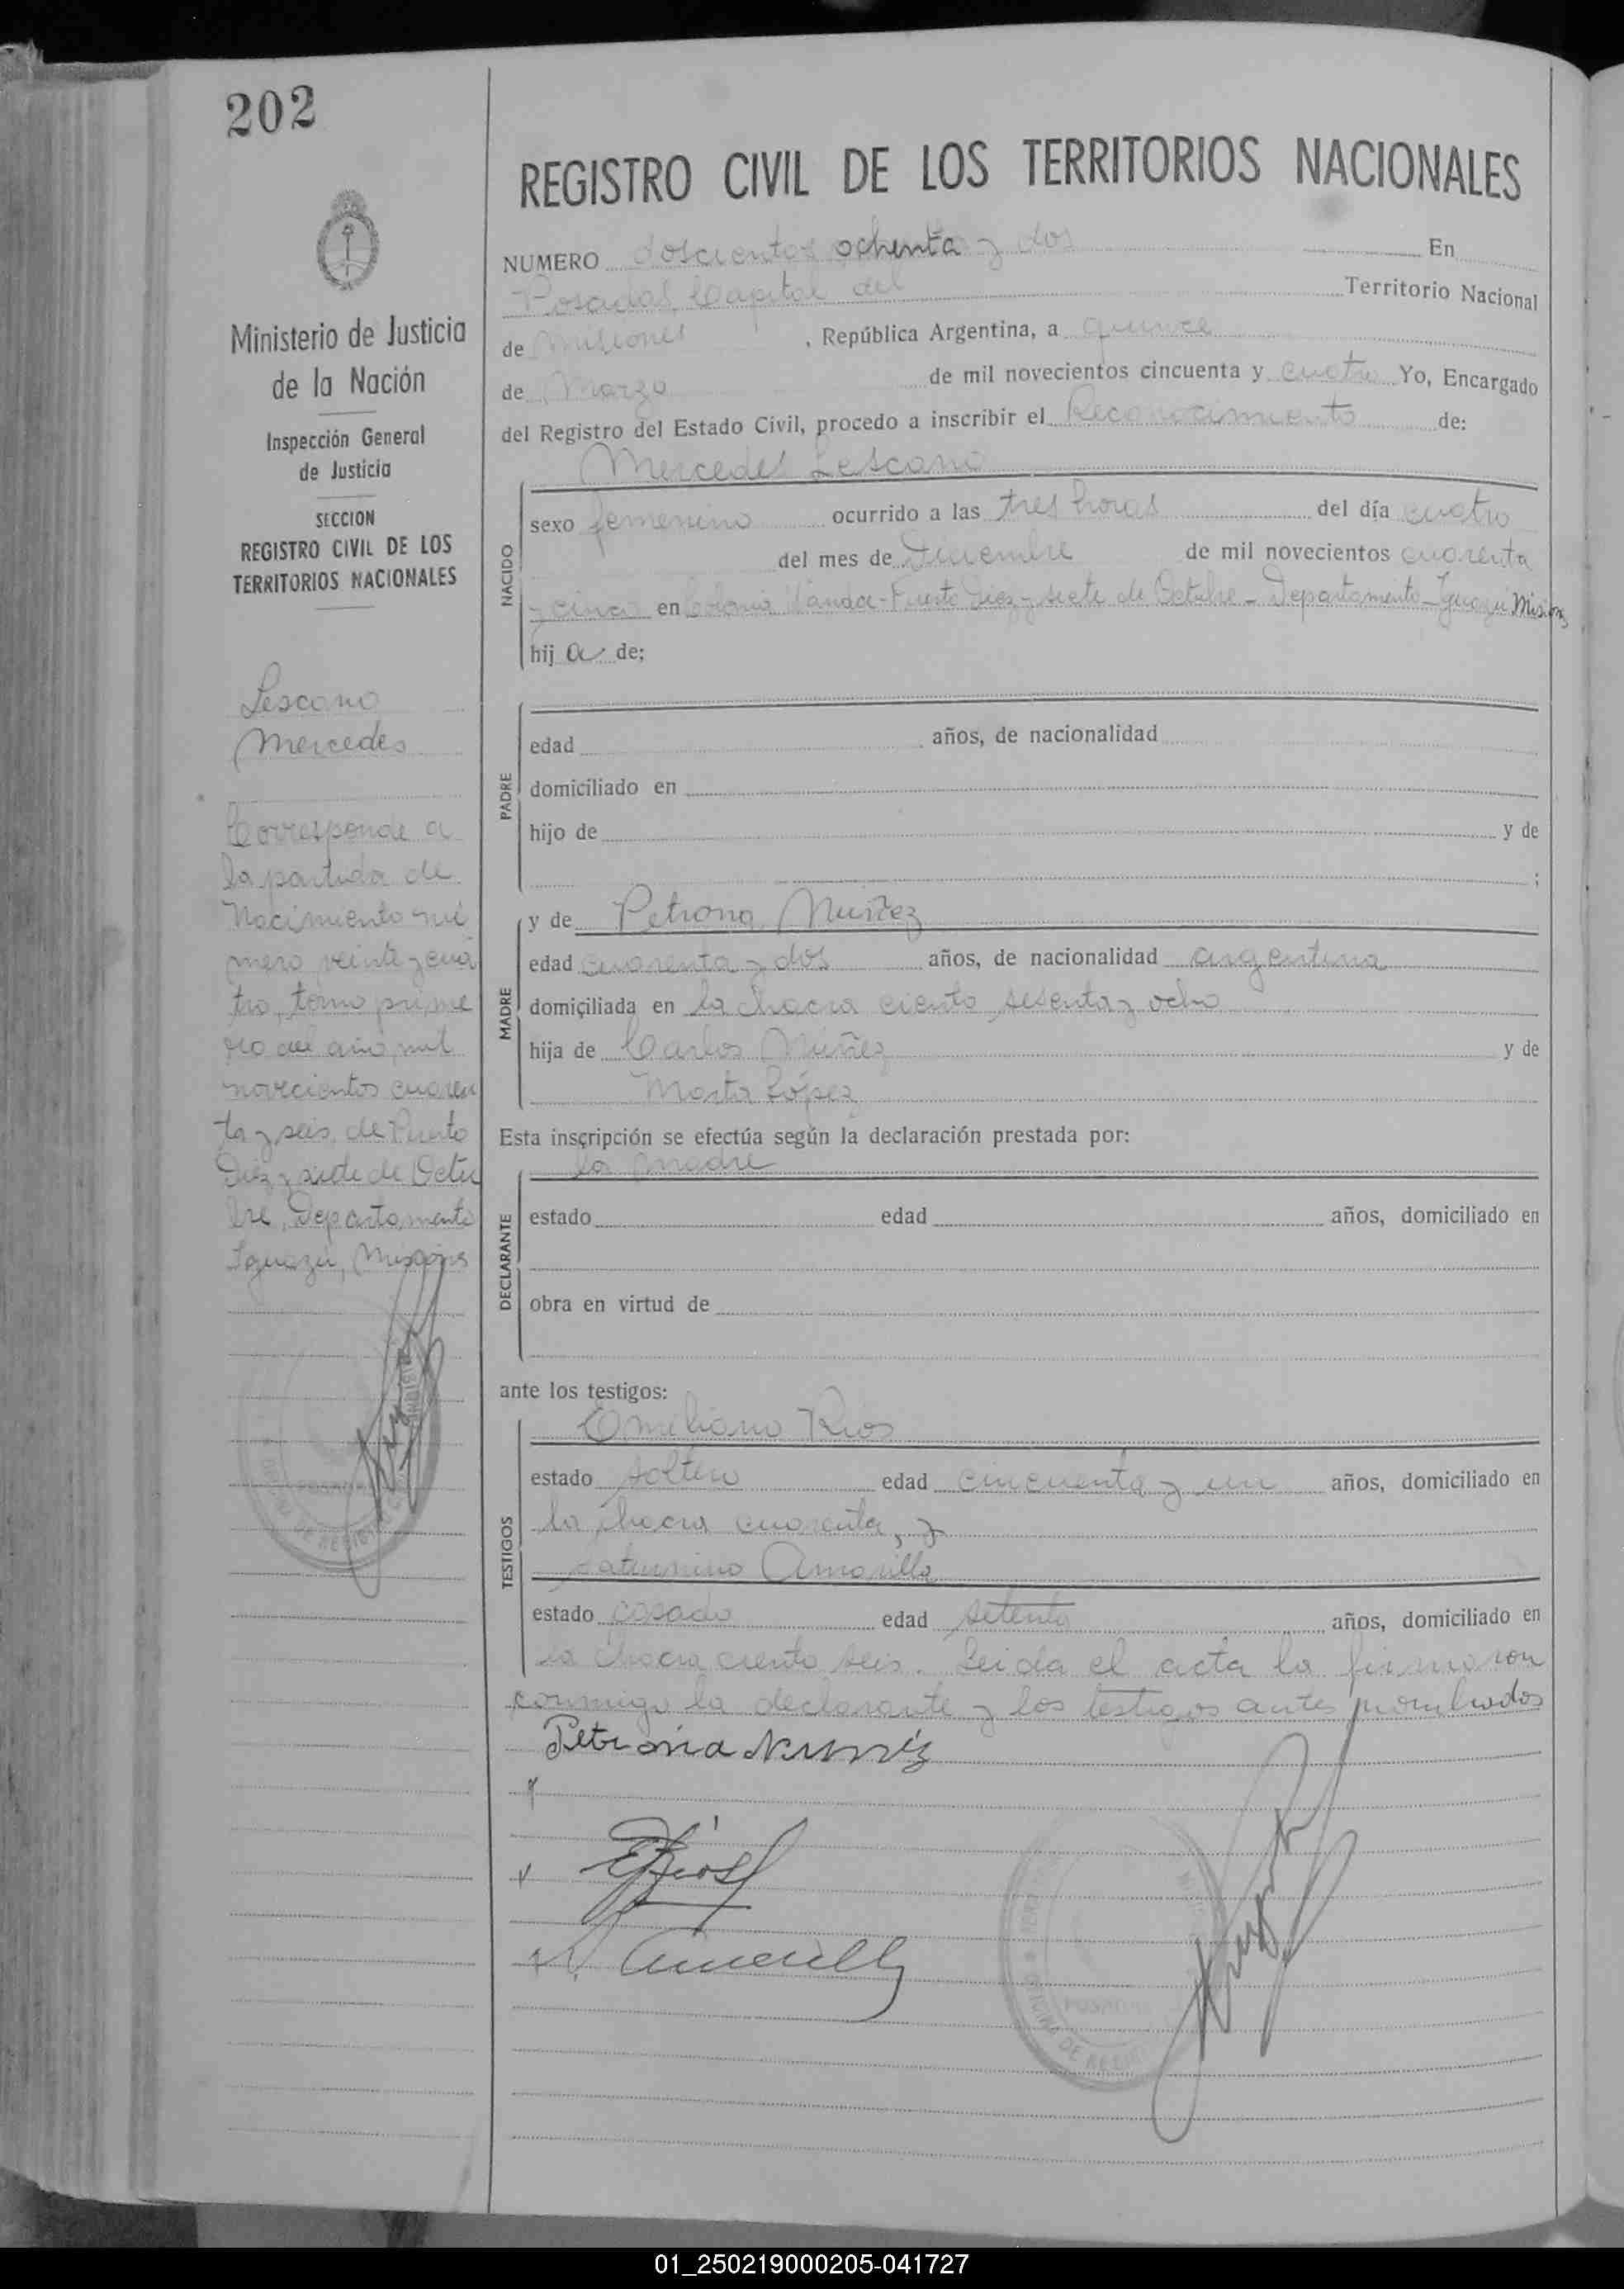 202
Ministerio de Justicia
de la Nación
Inspección General
de Justicia
SECCION
REGISTRO CIVIL DE LOS
TERRITORIOS NACIONALES
Lescano
Mercedes
Corresponde a
la partida de
Nacimiento nú
mero veinte y cua
tro, tomo prime
ro del año mil
novecientos cuaren
ta y seis, de Puerto
Diez y siete de Octu
bre, Departamento
Iguazú, Misiones
REGISTRO CIVIL DE LOS TERRITORIOS NACIONALES
NUMERO doscientos ochenta y dos En
Posadas, Capital del Territorio Nacional
de Misiones , República Argentina, a quince
de Marzo de mil novecientos cincuenta y cuatro Yo, Encargado
del Registro del Estado Civil, procedo a inscribir el Reconocimiento de:
Mercedes Lescano
NACIDO
sexo femenino ocurrido a las tres horas del día cuatro
del mes de Diciembre de mil novecientos cuarenta
y cinco en Colonia Wanda - Puerto Diez y siete de Octubre - Departamento - Iguazú Misiones
hij a de;
PADRE
edad años, de nacionalidad
domiciliado en
hijo de y de
;
MADRE
y de Petrona Nuñez
edad cuarenta y dos años, de nacionalidad argentina
domiciliada en la chacra ciento sesenta y ocho
hija de Carlos Núñez y de
Marta López
Esta inscripción se efectúa según la declaración prestada por:
la madre
DECLARANTE
estado edad años, domiciliado en
obra en virtud de
ante los testigos:
TESTIGOS
Emiliano Rios
estado soltero edad cincuenta y un años, domiciliado en
la chacra cuarenta, y
Saturnino Amarilla
estado casado edad setenta años, domiciliado en
la chacra ciento seis. Leida el acta la firmaron
conmigo la declarante y los testigos antes nombrados
Petrona Nuñez
E Rios
S. Amarilla
POSADAS
01_250219000205-041727